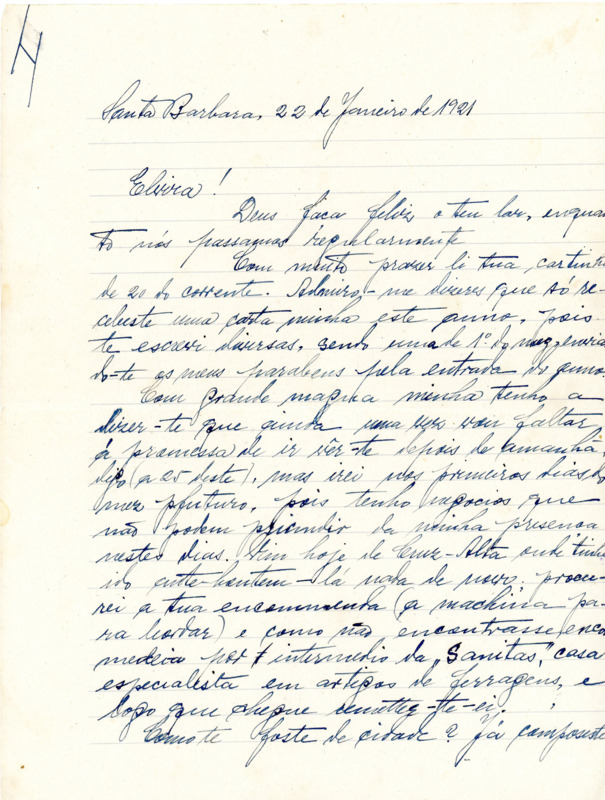 Santa Barbara, 22 de Janeiro de 1921
Elvira!
Deus faça feliz o teu lar, enquan
to nós passamos regularmente
Com muito prazer li tua cartinha
de 20 do corrente. Admiro-me dizeres que só re-
cebeste uma carta minha este anno, pois
te escrevi diversas, sendo uma de 1º do mez, envian
do-te os meus parabens pela entrada do anno
Com grande magua minha tenho a
dizer-te que ainda uma vez vou faltar
á promessa de ir vêr-te depois de amanhã,
digo (a 25 deste), mas irei nos primeiros dias do
mez phuturo, pois tenho negocios que
não podem da minha presença
nestes dias. Vim hoje de Cruz-Alta onde tinha
ido ante-hontem - lá nada de novo. procu-
rei a tua encommenda (a machina pa-
ra bordar) e como não encontrasse, enco
mendei por intermedio da "Sanitas", casa
especialista em artigos de ferragens, e
logo que chegue -te-ei.
Como te foste de cidade? Já compuseste